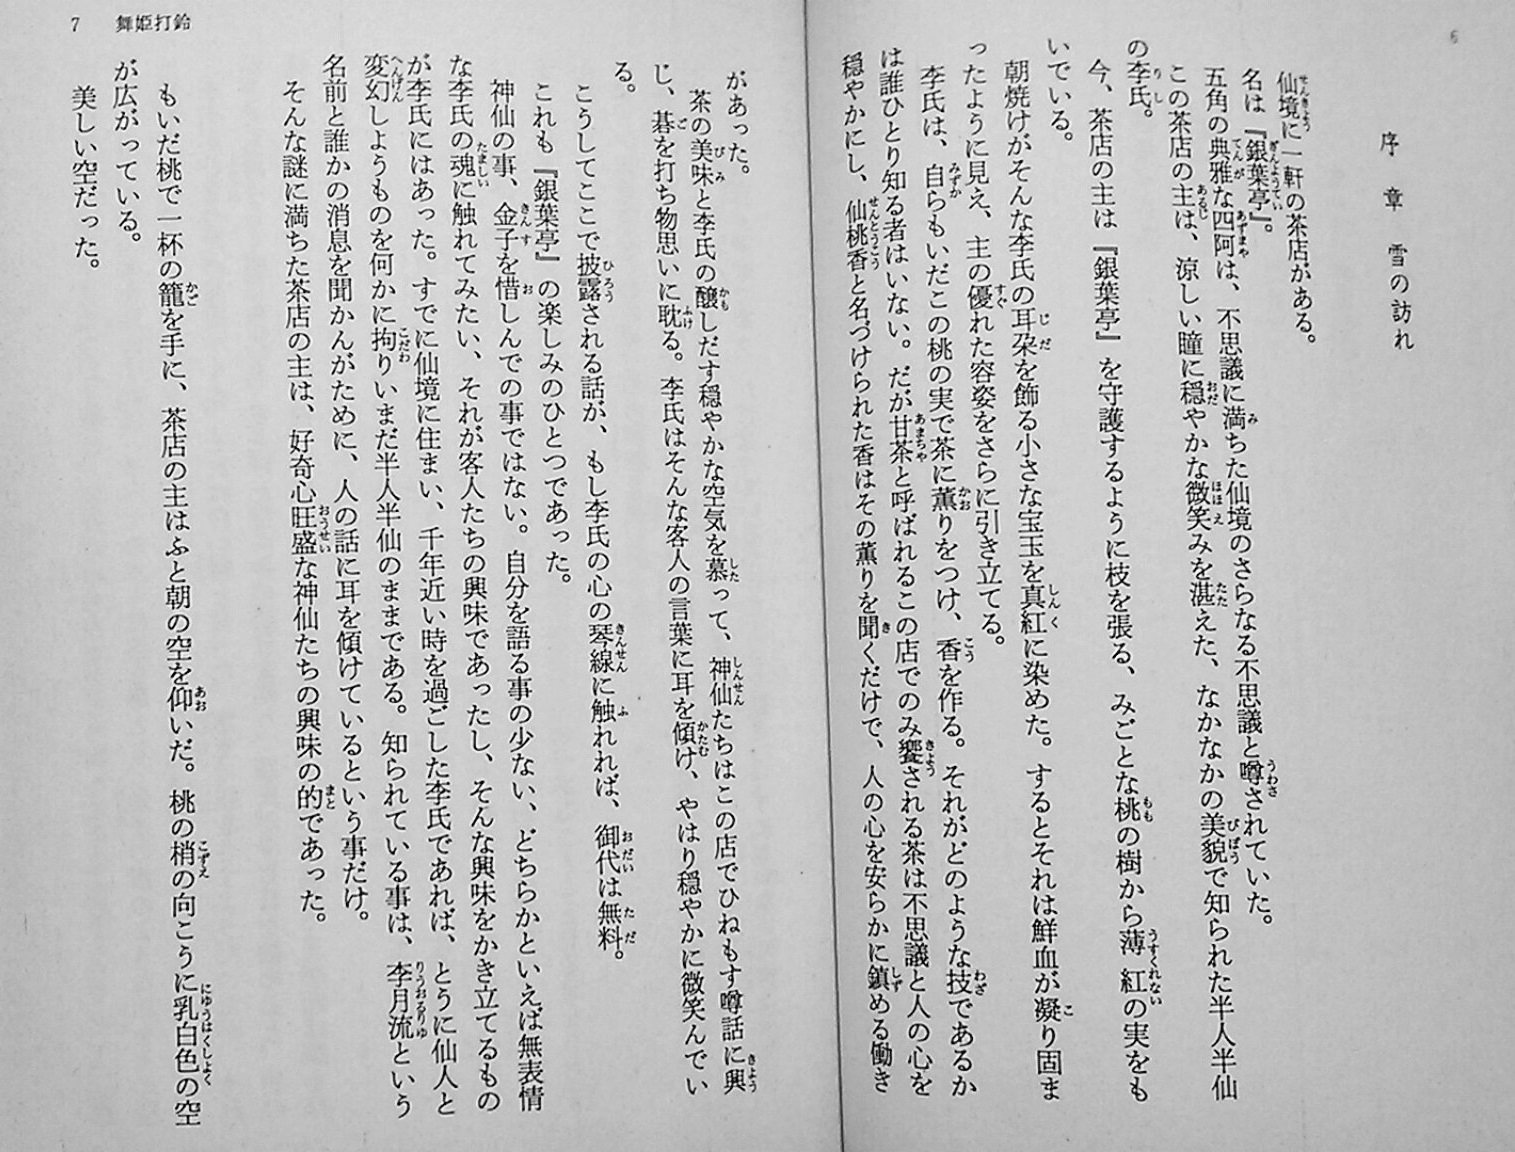 6
序章　雪の訪れ
仙境に一軒の茶店がある。
名は『銀葉亭』。
五角の典雅な四阿は、不思議に満ちた仙境のさらなる不思議と噂されていた。
この茶店の主は、涼しい瞳に穏やかな微笑みを湛えた、なかなかの美貌で知られた半人半仙
の李氏。
今、茶店の主は『銀葉亭』を守護するように枝を張る、みごとな桃の樹から薄紅の実をも
いでいる。
朝焼けがそんな李氏の耳朶を飾る小さな宝玉を真紅に染めた。するとそれは鮮血が凝り固ま
ったように見え、主の優れた容姿をさらに引き立てる。
李氏は、自らもいだこの桃の実で茶に薫りをつけ、香を作る。それがどのような技であるか
は誰ひとり知る者はいない。だが甘茶と呼ばれるこの店でのみ饗される茶は不思議と人の心を
穏やかにし、仙桃香と名づけられた香はその薫りを聞くだけで、人の心を安らかに鎮める働き
7　舞姫打鈴
があった。
茶の美味と李氏の醸しだす穏やかな空気を慕って、神仙たちはこの店でひねもす噂話に興
じ、碁を打ち物思いに耽る。李氏はそんな客人の言葉に耳を傾け、やはり穏やかに微笑んでい
る。
こうしてここで披露される話が、もし李氏の心の琴線に触れれば、御代は無料。
これも『銀葉亭』の楽しみのひとつであった。
神仙の事、金子を惜しんでの事ではない。自分を語る事の少ない、どちらかといえば無表情
な李氏の魂に触れてみたい、それが客人たちの興味であったし、そんな興味をかき立てるもの
が李氏にはあった。すでに仙境に住まい、千年近い時を過ごした李氏であれば、とうに仙人と
変幻しようものを何かに拘りいまだ半人半仙のままである。知られている事は、李月流という
名前と誰かの消息を聞かんがために、人の話に耳を傾けているという事だけ。
そんな謎に満ちた茶店の主は、好奇心旺盛な神仙たちの興味の的であった。
もいだ桃で一杯の籠を手に、茶店の主はふと朝の空を仰いだ。桃の梢の向こうに乳白色の空
が広がっている。
美しい空だった。